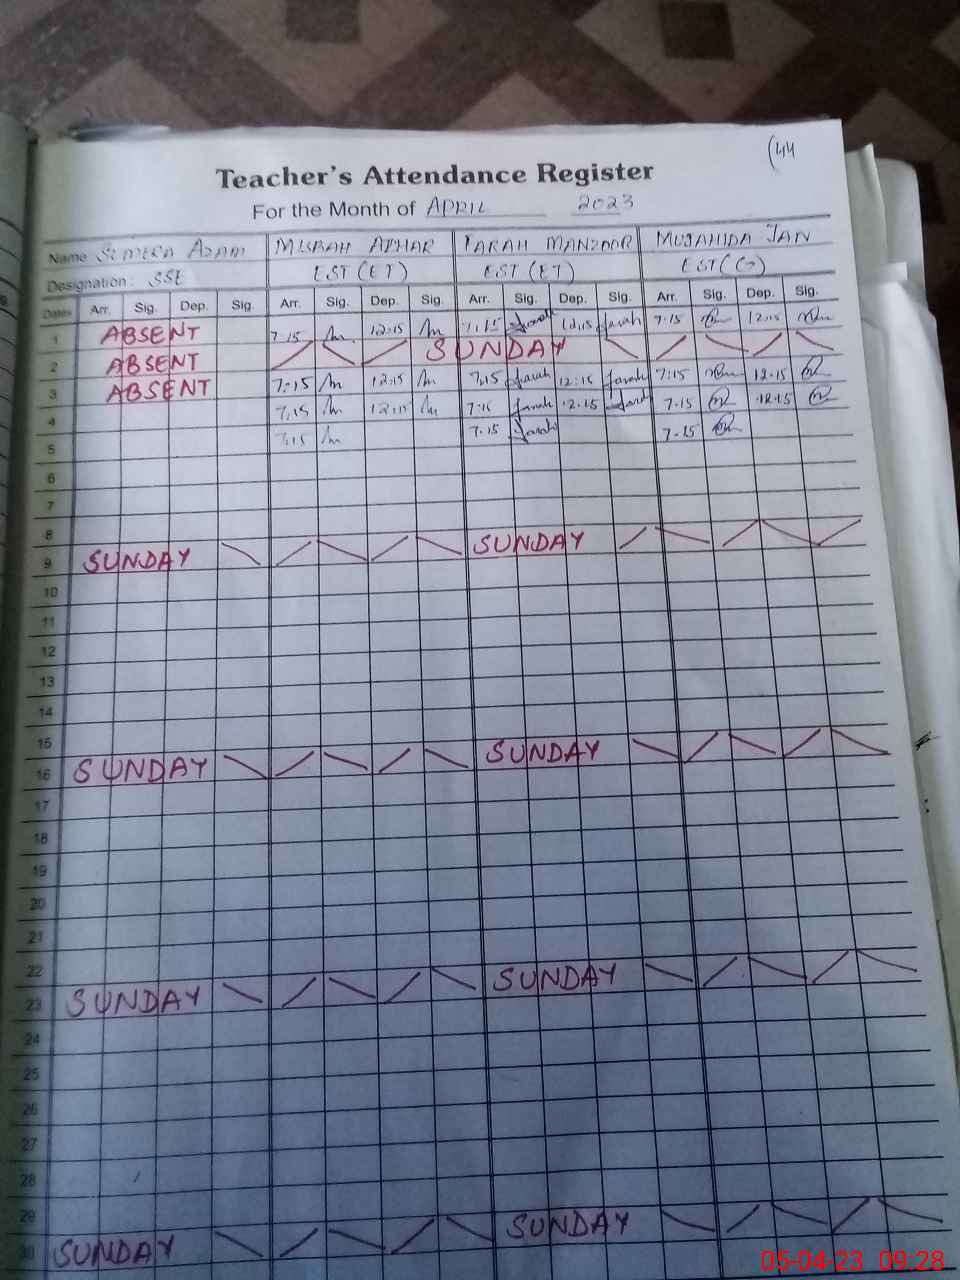 (44
Teacher's Attendance Register
For the Month of APRIL 2023
Name SUMERA AZAM MISBAH AZHAR FARAH MANZOOR MUJAHIDA JAN
Designation: SSE EST (ET) EST (ET) EST (G)
Dates Arr. Sig. Dep. Sig. Arr. Sig. Dep. Sig. Arr. Sig. Dep. Sig. Arr. Sig. Dep. Sig.
1 ABSENT 7.15 12.15 7.15 Farah 12.15 Farah 7.15 12.15
2 ABSENT SUNDAY
3 ABSENT 7:15 12.15 7.15 Farah 12:15 Farah 7:15 12.15
4 7.15 12.15 7:15 Farah 12.15 Farah 7.15 12.15
5 7.15 7.15 Farah 7.15
6
7
8
9 SUNDAY SUNDAY
10
11
12
13
14
15
16 SUNDAY SUNDAY
17
18
19
20
21
22
23 SUNDAY SUNDAY
24
25
26
27
28
29
30 SUNDAY SUNDAY
05-04-23 09:28